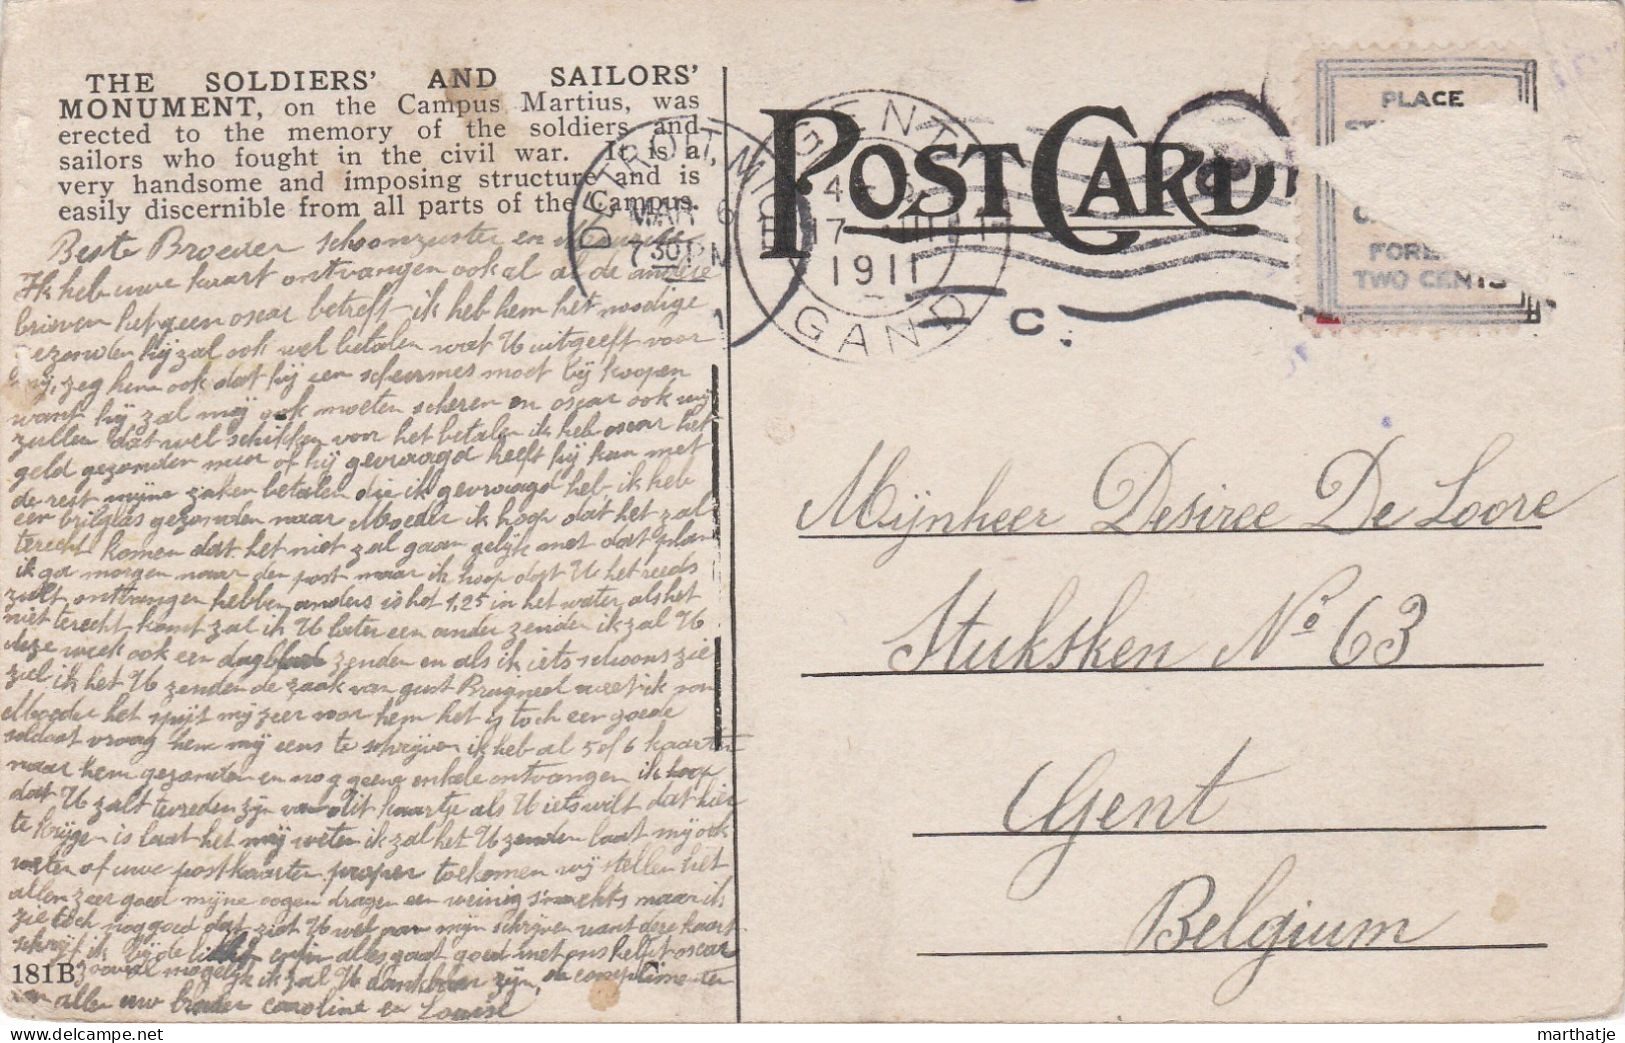 THE SOLDIERS' AND SAILORS'
MONUMENT, on the Campus Martius, was
erected to the memory of the soldiers and
sailors who fought in the civil war. It is a
very handsome and imposing structure and is
easily discernible from all parts of the Campus.
POST CARD
DETROIT, MICH.
MAR 6
7 30 PM
GENT
17 III
1911
GAND
C
PLACE
FORE
TWO CENTS
Beste Broeder schoonzuster en
Ik heb uwe kaart ontvangen ook al al de andere
brieven hetgeen oscar betreft ik heb hem het noodige
gezonden hij zal ook wel betalen wat U uitgeeft voor
mij, zeg hem ook dat hij een scheermes moet bij koopen
want hij zal mij ook moeten scheren en oscar ook wij
zullen dat wel schikken voor het betalen ik heb oscar het
geld gezonden meer of hij gevraagd heeft hij kan met
de rest mijne zaken betalen die ik gevraagd heb, ik heb
een brilglas gezonden naar Moeder ik hoop dat het zal
terecht komen dat het niet zal gaan gelijk met dat plan
ik ga morgen naar den post maar ik hoop dat U het reeds
zult ontvangen hebben, anders is het 1.25 in het water, als het
niet terecht komt zal ik U later een ander zenden ik zal U
deze week ook een dagblad zenden en als ik iets schoons zie
zal ik het U zenden de zaak van gust Bruyneel weet ik van
Moeder het spijt mij zeer voor hem het is toch een goede
soldaat vraag hem mij eens te schrijven ik heb al 5 of 6 kaarten
naar hem gezonden en nog geene enkele ontvangen ik hoop
dat U zult tevreden zijn van dit kaartje als U iets wilt dat hier
te krijgen is laat het mij weten ik zal het U zenden laat mij ook
weten of uwe postkaarten proper toekomen wij stellen het
allen zeer goed mijne oogen dragen een weinig maar ik
zie toch nog goed dat ziet U wel aan mijn schrijven want deze kaart
schrijf ik bij de alles gaat goed met ons helpt oscar
zooveel mogelijk ik zal U dankbaar zijn, de complimenten
van allen uw broeder caroline en Louise
181B
Mijnheer Desiree De Loore
Stuksken No 63
Gent
Belgium
marthatje